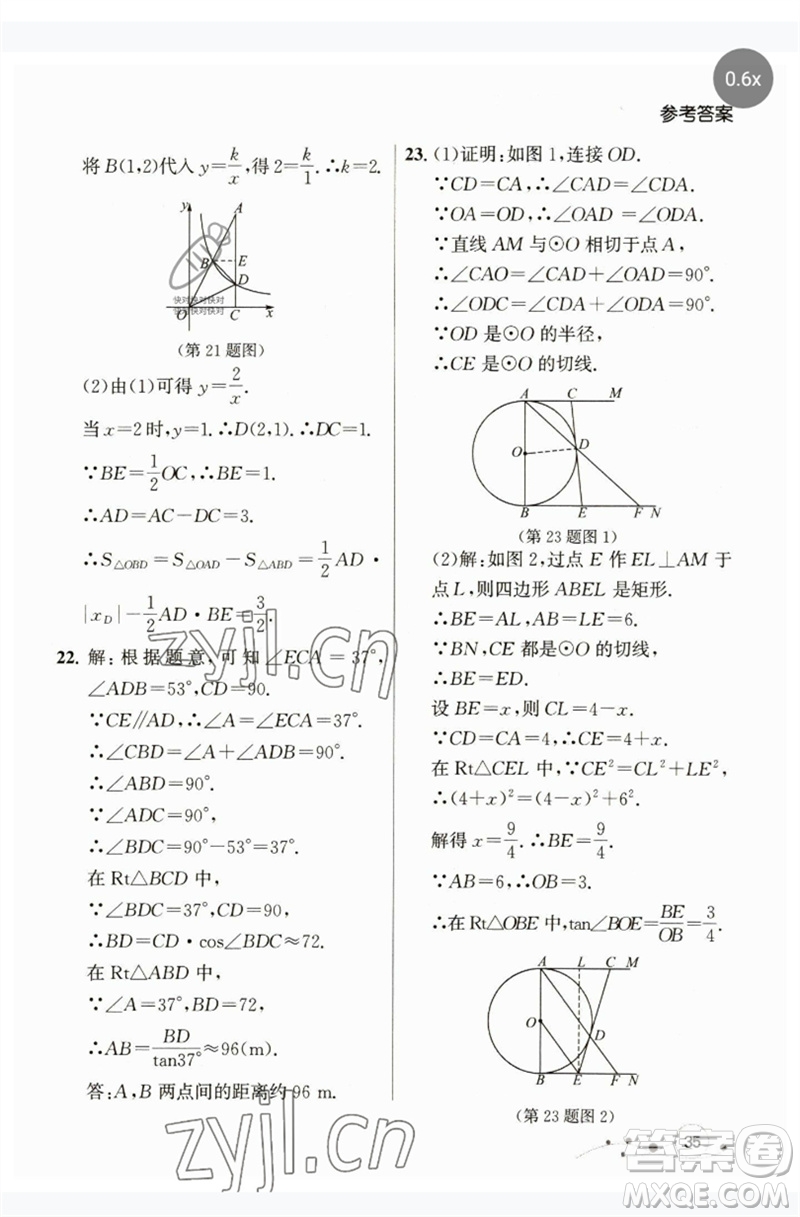 0.6x
参考答案
将 B(1,2)代入 y=k/x,得 2=k/1.∴k=2.
y
A
B
E
D
快对快对快对
快对快对快对
O
C
x
(第 21 题图)
(2)由(1)可得 y=2/x.
当 x=2 时,y=1.∴D(2,1).∴DC=1.
∵BE=1/2OC,∴BE=1.
∴AD=AC-DC=3.
∴S△OBD=S△OAD-S△ABD=1/2AD·
|xD|-1/2AD·BE=3/2.
22. 解:根据题意,可知∠ECA=37°,
∠ADB=53°,CD=90.
∵CE∥AD,∴∠A=∠ECA=37°.
∴∠CBD=∠A+∠ADB=90°.
∴∠ABD=90°.
∵∠ADC=90°,
∴∠BDC=90°-53°=37°.
在 Rt△BCD 中,
∵∠BDC=37°,CD=90,
∴BD=CD·cos∠BDC≈72.
在 Rt△ABD 中,
∵∠A=37°,BD=72,
∴AB=BD/tan37°≈96(m).
答:A,B 两点间的距离约 96 m.
23. (1)证明:如图 1,连接 OD.
∵CD=CA,∴∠CAD=∠CDA.
∵OA=OD,∴∠OAD=∠ODA.
∵直线 AM 与⊙O 相切于点 A,
∴∠CAO=∠CAD+∠OAD=90°.
∴∠ODC=∠CDA+∠ODA=90°.
∵OD 是⊙O 的半径,
∴CE 是⊙O 的切线.
A
C
M
O
D
B
E
F
N
(第 23 题图 1)
(2)解:如图 2,过点 E 作 EL⊥AM 于
点 L,则四边形 ABEL 是矩形.
∴BE=AL,AB=LE=6.
∵BN,CE 都是⊙O 的切线,
∴BE=ED.
设 BE=x,则 CL=4-x.
∵CD=CA=4,∴CE=4+x.
在 Rt△CEL 中,∵CE²=CL²+LE²,
∴(4+x)²=(4-x)²+6².
解得 x=9/4.∴BE=9/4.
∵AB=6,∴OB=3.
∴在 Rt△OBE 中,tan∠BOE=BE/OB=3/4.
A
L
C
M
O
D
B
E
F
N
(第 23 题图 2)
35
zyjl.cn
zyjl.cn
答案圈
MXQE.COM